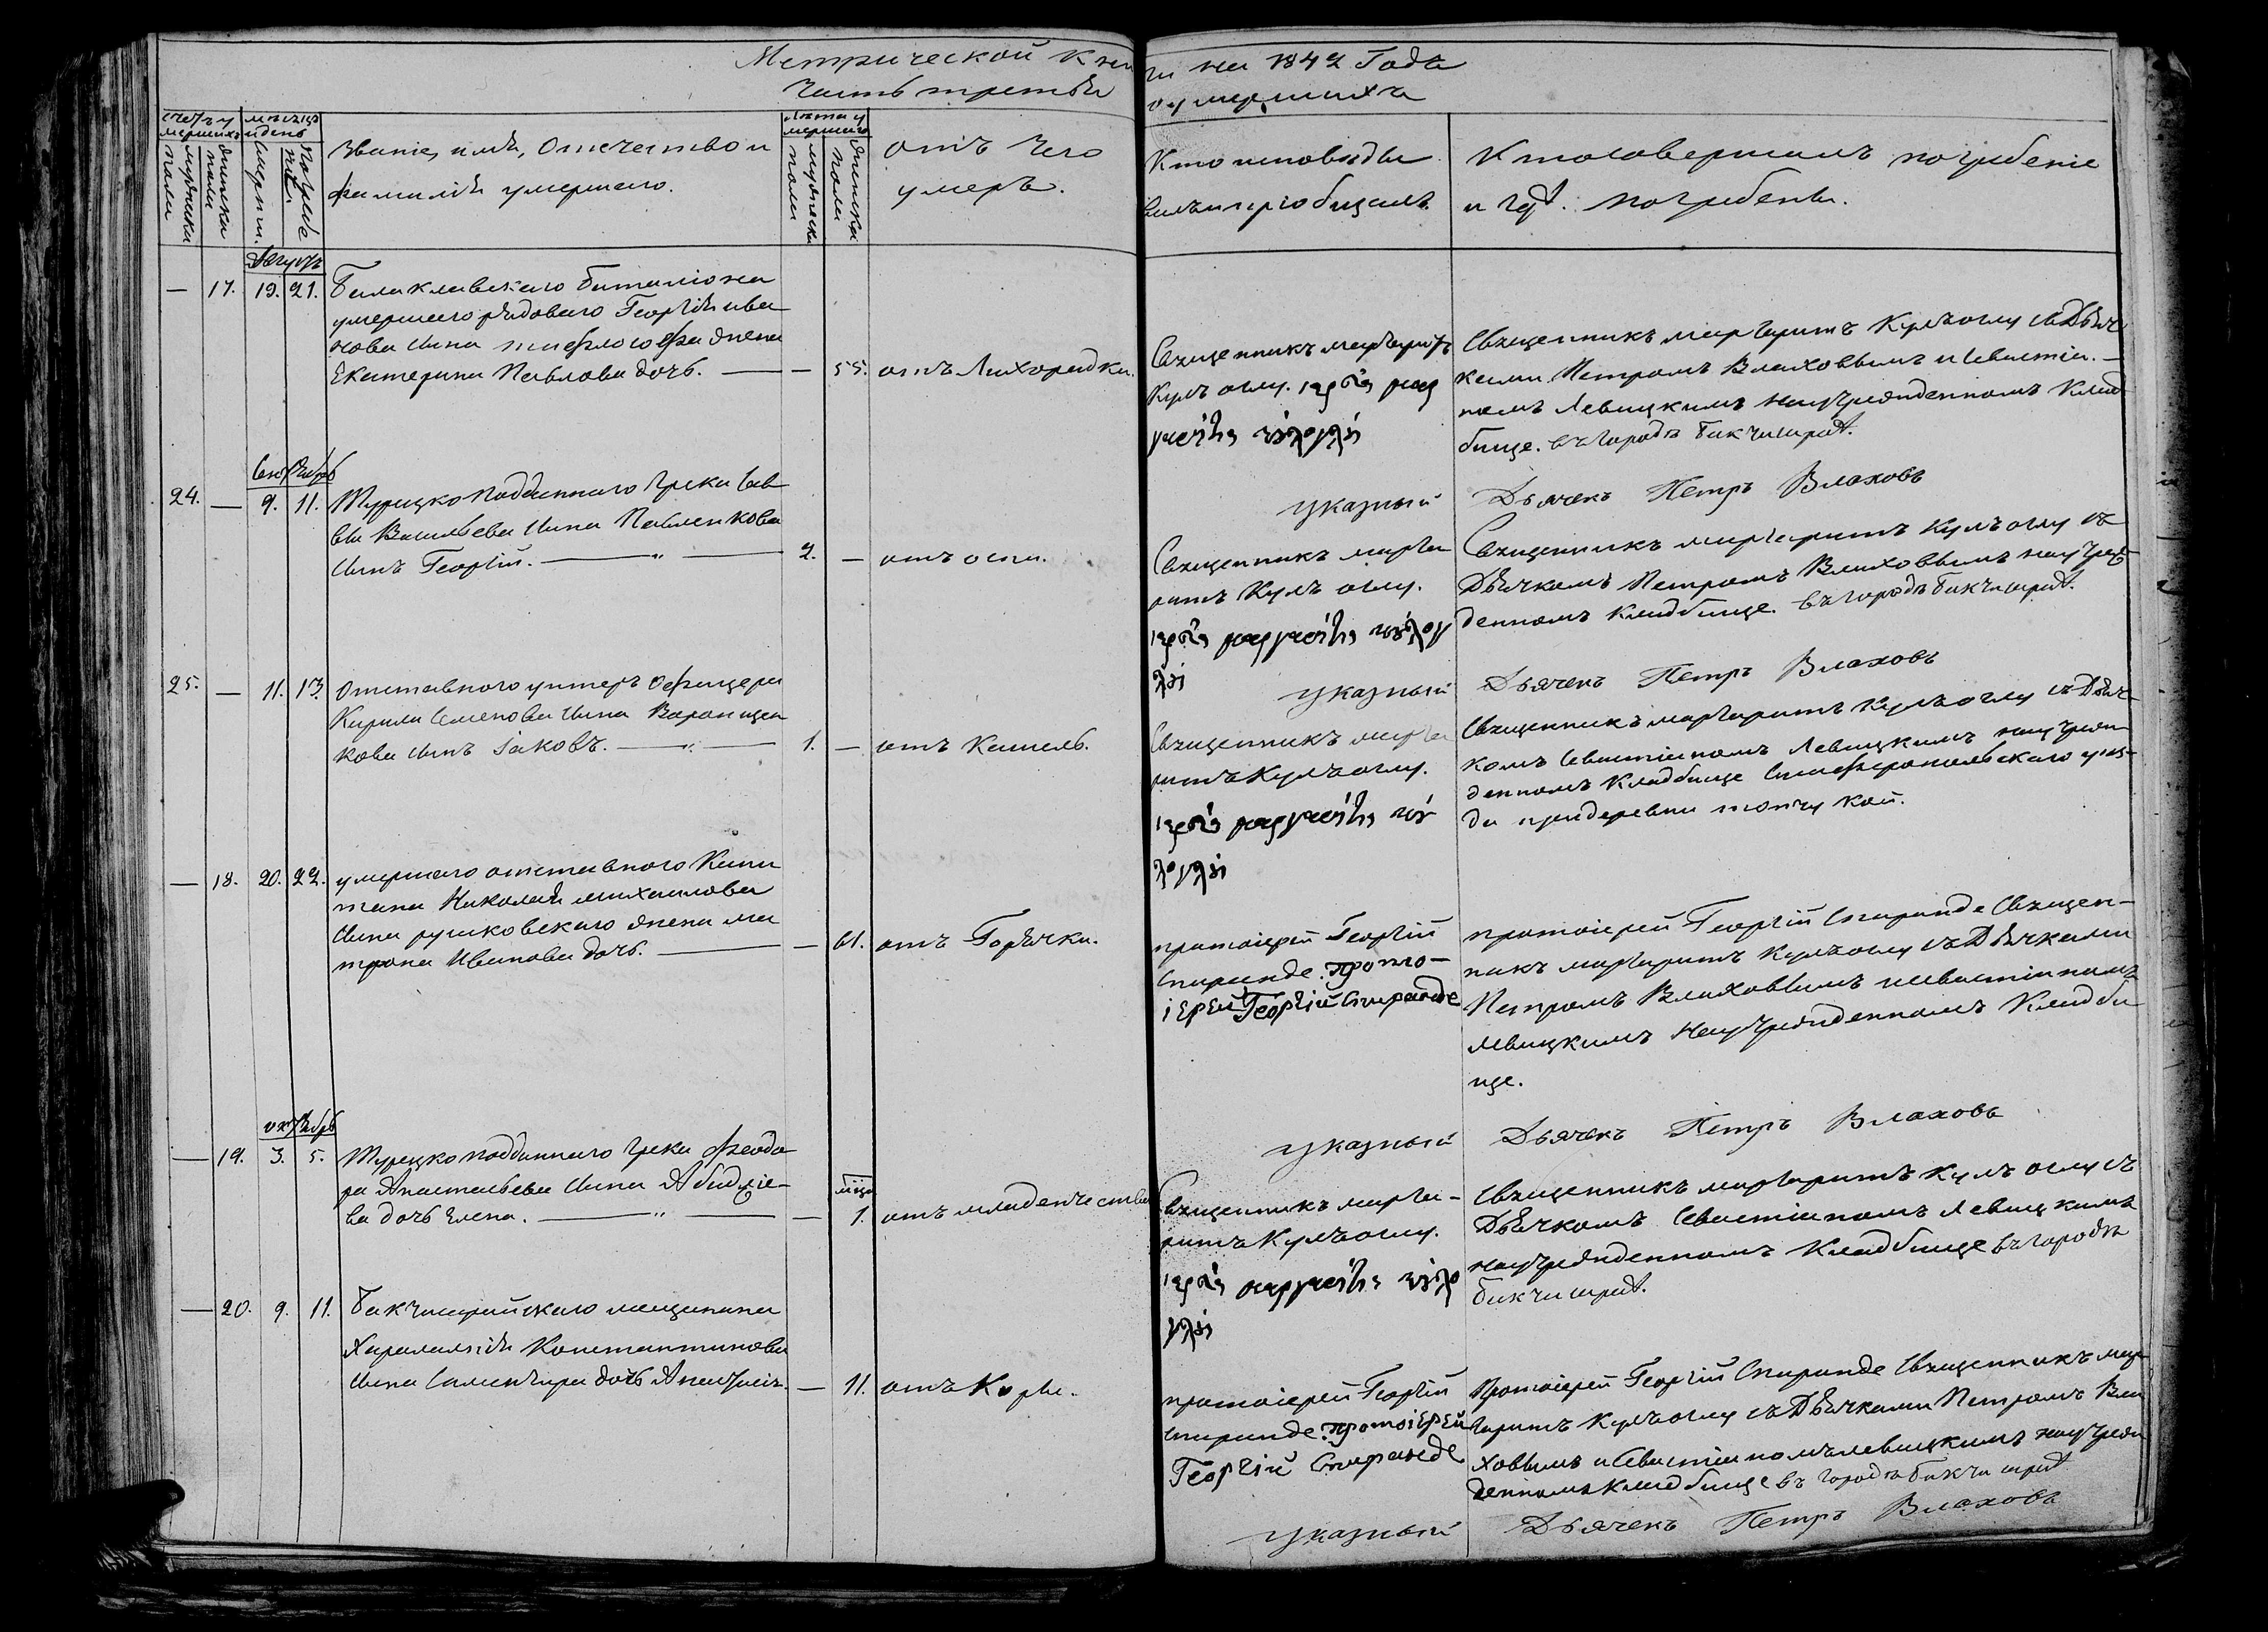 Метрической Кни
ги на 1842 Года
Часть третья
о умершихъ
счетъ у
мершихъ
мужеска
пола
женска
пола
мѣсяцъ
и день
Смерти.
Погребе
нія.
Званіе, имя, Отечество и
фамилія умершаго.
Лѣта у
мершаго
мужеска
пола
женска
пола
отъ Чего
умеръ.
Кто исповѣды
валъ и пріобщалъ.
Кто совершалъ погребеніе
и гдѣ погребены.
Августъ
— 17. 19. 21. Балаклавскаго баталіона
умершаго рядоваго Георгія ива
нова сына жена
Екатерина Павлова дочь. — — 55. отъ Лихорадки.
Священникъ маргаритъ
Кулъ оглу. ἱερεὺς μαρ
γαρίτης κούλογλου
Священникъ маргаритъ Кулъоглу съ Дьяч
ками Петромъ Влаховымъ и Севастіа—
номъ Левицкимъ на учрежденномъ Клад
бище. въ городѣ бакчисараѣ.
указный Дьячекъ Петръ Влаховъ
Сентябрь
24. — 9. 11. Турецко подданнаго Грека Сав
вы Васильева сына Павленкова
сынъ Георгій. — „ — 2. — отъ оспы.
Священникъ марга
ритъ Кулъ оглу.
ἱερεὺς μαργαρίτης κούλογ
λου
Священникъ маргаритъ Кулъоглу съ
Дьячкомъ Петромъ Влаховымъ на учреж
денномъ Кладбище. въ городѣ бакчисараѣ.
указный Дьячекъ Петръ Влаховъ
25. — 11. 13. отставного унтеръ офицера
Кирила Семенова сына Воронцен
кова сынъ Іаковъ. — „ — 1. — отъ Кашель.
Священникъ марга
ритъ Кулъоглу.
ἱερεὺς μαργαρίτης κού
λογλου
Священникъ маргаритъ Кулъоглу съ Дьяч
комъ Севастіаномъ Левицкимъ на учреж
денномъ Кладбище Симферопольскаго уѣз-
да при деревни топчу кой.
— 18. 20. 22. умершаго отставного Капи
тана Николая михаилова
сына рушковскаго жена ма
трона Иванова дочь. — — 61. отъ Горячки.
протоіерей Георгій
Спиранде. Прото—
іерей Георгій Спиранде
протоіерей Георгій Спиранде Священ—
никъ маргаритъ Кулъоглу съ Дьячками
Петромъ Влаховымъ и севастіаномъ
левицкимъ На учрежденномъ Кладби
ще.
указный Дьячекъ Петръ Влаховъ
октябрь
— 19. 3. 5. Турецко подданнаго Грека Феодо
ра Анастасьева сына Абаджіе-
ва дочь Елена. — „ — — мца 1. отъ младенчества
Священникъ марга-
ритъ Кулъоглу.
ἱερεὺς μαργαρίτης κούλο
γλου
Священникъ маргаритъ Кулъ оглу съ
Дьячкомъ Севастіаномъ Левицкимъ
на учрежденномъ Кладбище въ городѣ
бакчисараѣ.
— 20. 9. 11. Бакчисарайскаго мещанина
Харалампія Константинова
сына дочь Анастасія. — 11. отъ Кори.
протоіерей Георгій
Спиранде. протоіерей
Георгій Спиранде
Протоіерей Георгій Спиранде Священникъ мар
гаритъ Кулъоглу съ Дьячками Петромъ Вла
ховымъ и Севастіаномъ левицкимъ на учреж
денномъ Кладбище въ городѣ бакчисараѣ
указный Дьячекъ Петръ Влаховъ